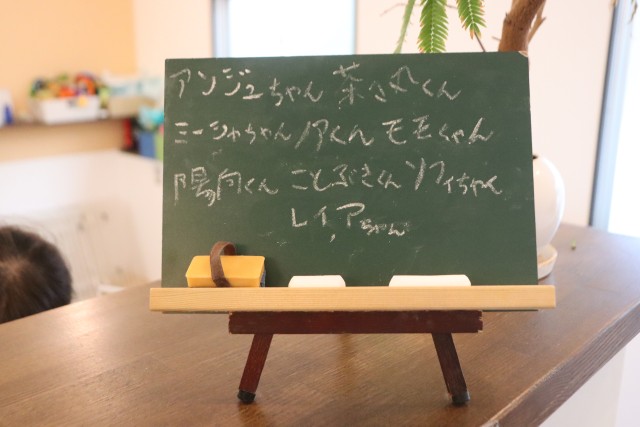 アンジュちゃん 茶々丸くん
ミーシャちゃん ノアくん モモちゃん
陽向くん ことぶきくん ソフィちゃん
レイアちゃん